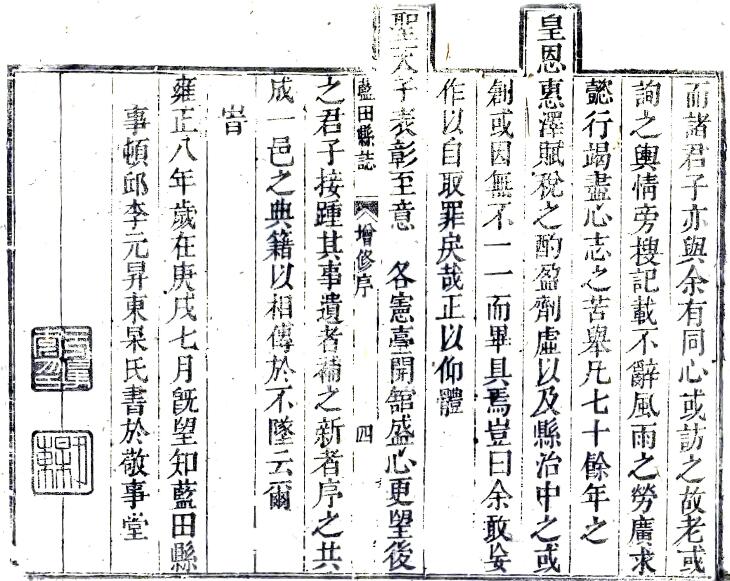 而諸君子亦與余有同心或訪之故老或
詢之輿情旁搜記載不辭風雨之勞廣求
懿行竭盡心志之苦舉凡七十餘年之
皇恩惠澤賦稅之酌盈劑虛以及縣治中之或
創或因無不一一而畢具焉豈曰余敢妄
作以自取罪戾哉正以仰體
聖天子表彰至意 各憲臺開舘盛心更望後
藍田縣誌 增修序 四
之君子接踵其事遺者補之新者序之共
成一邑之典籍以相傳於不墜云爾
旹
雍正八年歲在庚戌七月旣望知藍田縣
事頓邱李元昇東杲氏書於敬事堂